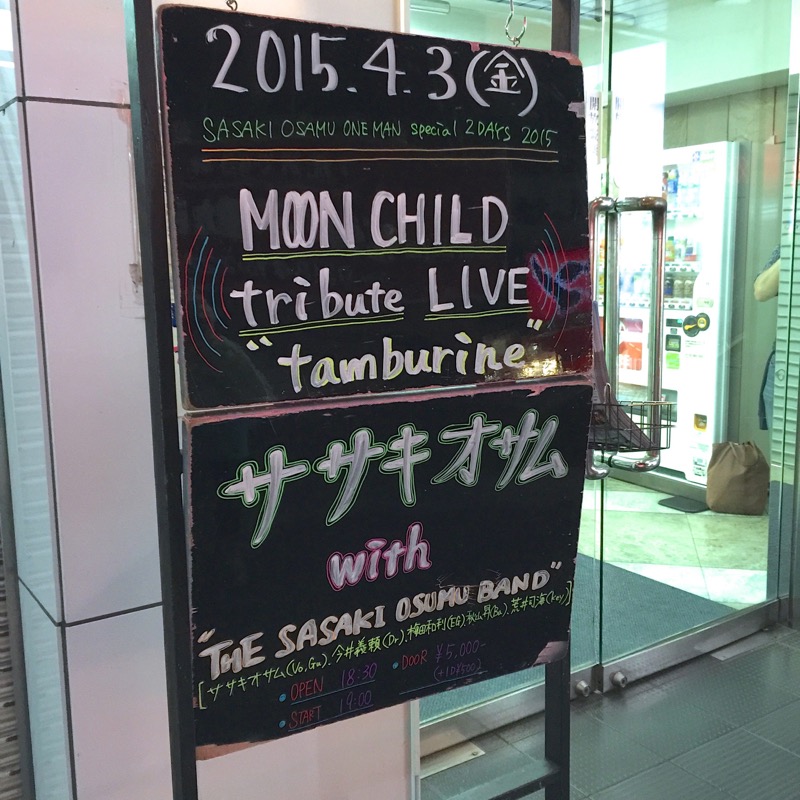 2015.4.3(金)
SASAKI OSAMU ONE MAN special 2DAYS 2015
MOON CHILD
tribute LIVE
"tamburine"
ササキオサム
with
"THE SASAKI OSUMU BAND"
[ササキオサム(Vo,Gu)、今井義頼(Dr)、梅田和利(EG)、秋山丹(Ba)、荒井可海(Key)]
•OPEN 18:30 •DOOR ¥5,000-
•START 19:00 (+1D¥500)